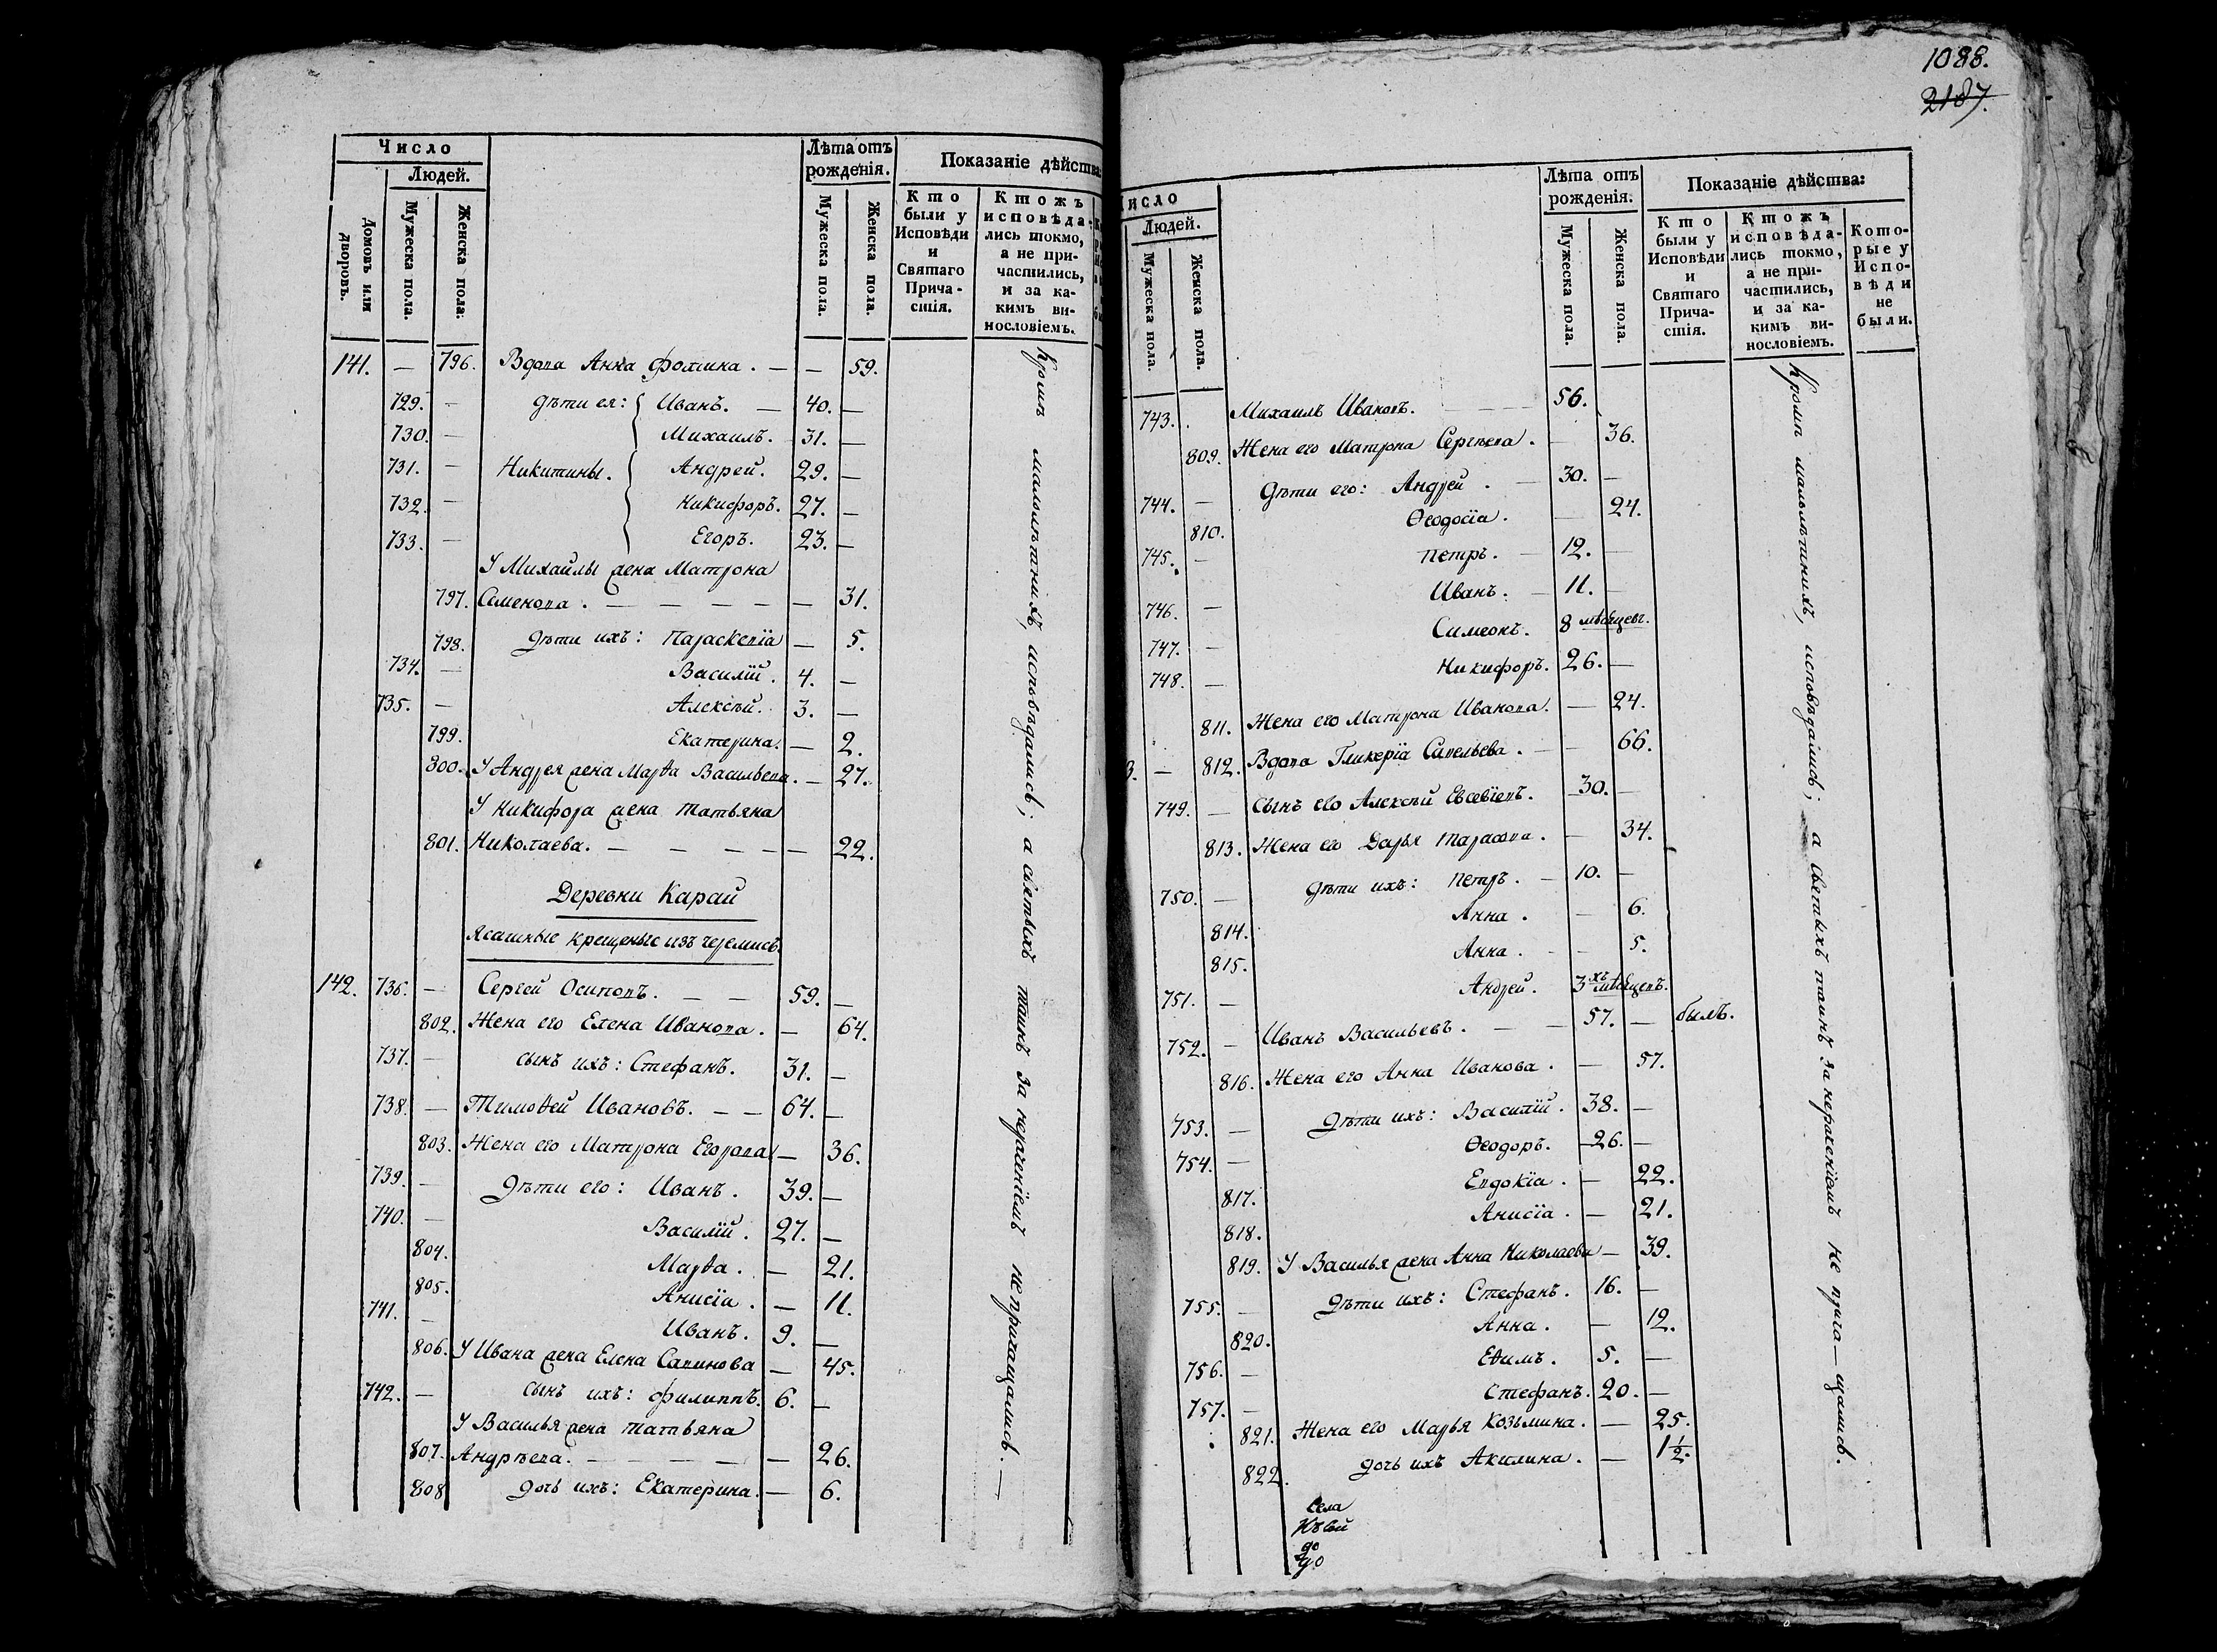 1088.
2187.
Число
Людей.
Домовъ или дворовъ.
Мужеска пола.
Женска пола.
Лѣта отъ рожденія.
Мужеска пола.
Женска пола.
Показаніе дѣйства:
Кто были у Исповѣди и Святаго Причастія.
Ктожъ исповѣдались токмо, а не причастились, и за какимъ винословіемъ.
141. — 796. Вдова Анна Фомина. — — 59.
729. — Дѣти ея: Иванъ. — 40. —
730. — Михаилъ. 31. —
731. — Никитины. Андрей. 29. —
732. — Никифоръ. 27. —
733. — Егоръ. 23. —
У Михайлы жена Матрона
797. Семенова. — — — — — 31.
798. Дѣти ихъ: Параскевіа — 5.
734. — Василій. 4. —
735. — Алексѣй. 3. —
799. Екатерина. — 2.
800. У Андрея жена Марѳа Васильева. — 27.
У Никифора жена Татьяна
801. Николаева. — — — — — 22.
Деревни Карай
Ясашные крещеные изъ черемисъ.
142. 736. — Сергей Осиповъ. — — 59. —
802. Жена его Елена Иванова. — 64.
737. — сынъ ихъ: Стефанъ. 31. —
738. — Тимоѳей Ивановъ. — — 64. —
803. Жена его Матрона Егорова — 36.
739. — Дѣти его: Иванъ. 39. —
740. — Василій. 27. —
804. Марѳа. — 21.
805. Анисіа. — 11.
741. — Иванъ. 9. —
806. У Ивана жена Елена Савинова — 45.
742. — сынъ ихъ: Филиппъ. 6. —
У Василья жена Татьяна
807. Андрѣева. — — — — — 26.
808 дочь ихъ: Екатерина. — 6.
Кромѣ малолѣтнихъ, исповѣдались; а святыхъ таинъ за нераченіемъ не причащались. —
Число
Людей.
Мужеска пола.
Женска пола.
Лѣта отъ рожденія.
Мужеска пола.
Женска пола.
Показаніе дѣйства:
Кто были у Исповѣди и Святаго Причастія.
Ктожъ исповѣдались токмо, а не причастились, и за какимъ винословіемъ.
Которые у Исповѣди не были.
743. Михаилъ Ивановъ. 56.
809. Жена его Матрона Сергѣева. — 36.
744. — Дѣти его: Андрей. — 30. —
810. Ѳеодосіа. — 24.
745. — Петръ. — 12. —
746. — Иванъ. — 11. —
747. — Симеонъ. 8 мѣсяцевъ.
748. — Никифоръ. 26. —
811. Жена его Матрона Иванова. — 24.
3. — 812. Вдова Гликеріа Савельева. — — 66.
749. — Сынъ его Алексѣй Евсевіевъ. 30. —
813. Жена его Дарья Тарасова. — 34.
750. — Дѣти ихъ: Петръ. — 10. —
814. Анна. — 6.
815. Анна. — 5.
751. — Андрей. 3хъ мѣсяцевъ.
752. — Иванъ Васильевъ. — — 57. — былъ.
816. Жена его Анна Иванова. — 57.
753. — Дѣти ихъ: Василій. 38. —
754. — Ѳеодоръ. 26. —
817. Евдокіа. — 22.
818. Анисіа. — 21.
819. У Василья жена Анна Николаева — 39.
755. — Дѣти ихъ: Стефанъ. 16. —
820. Анна. — 12.
756. — Еѳимъ. 5. —
757. — Стефанъ. 20. —
821. Жена его Марья Козьмина. — 25.
822. дочь ихъ Акилина. — 1½.
Села
до
Кромѣ малолѣтнихъ, исповѣдались; а святыхъ таинъ за нераченіемъ не прича—щались.